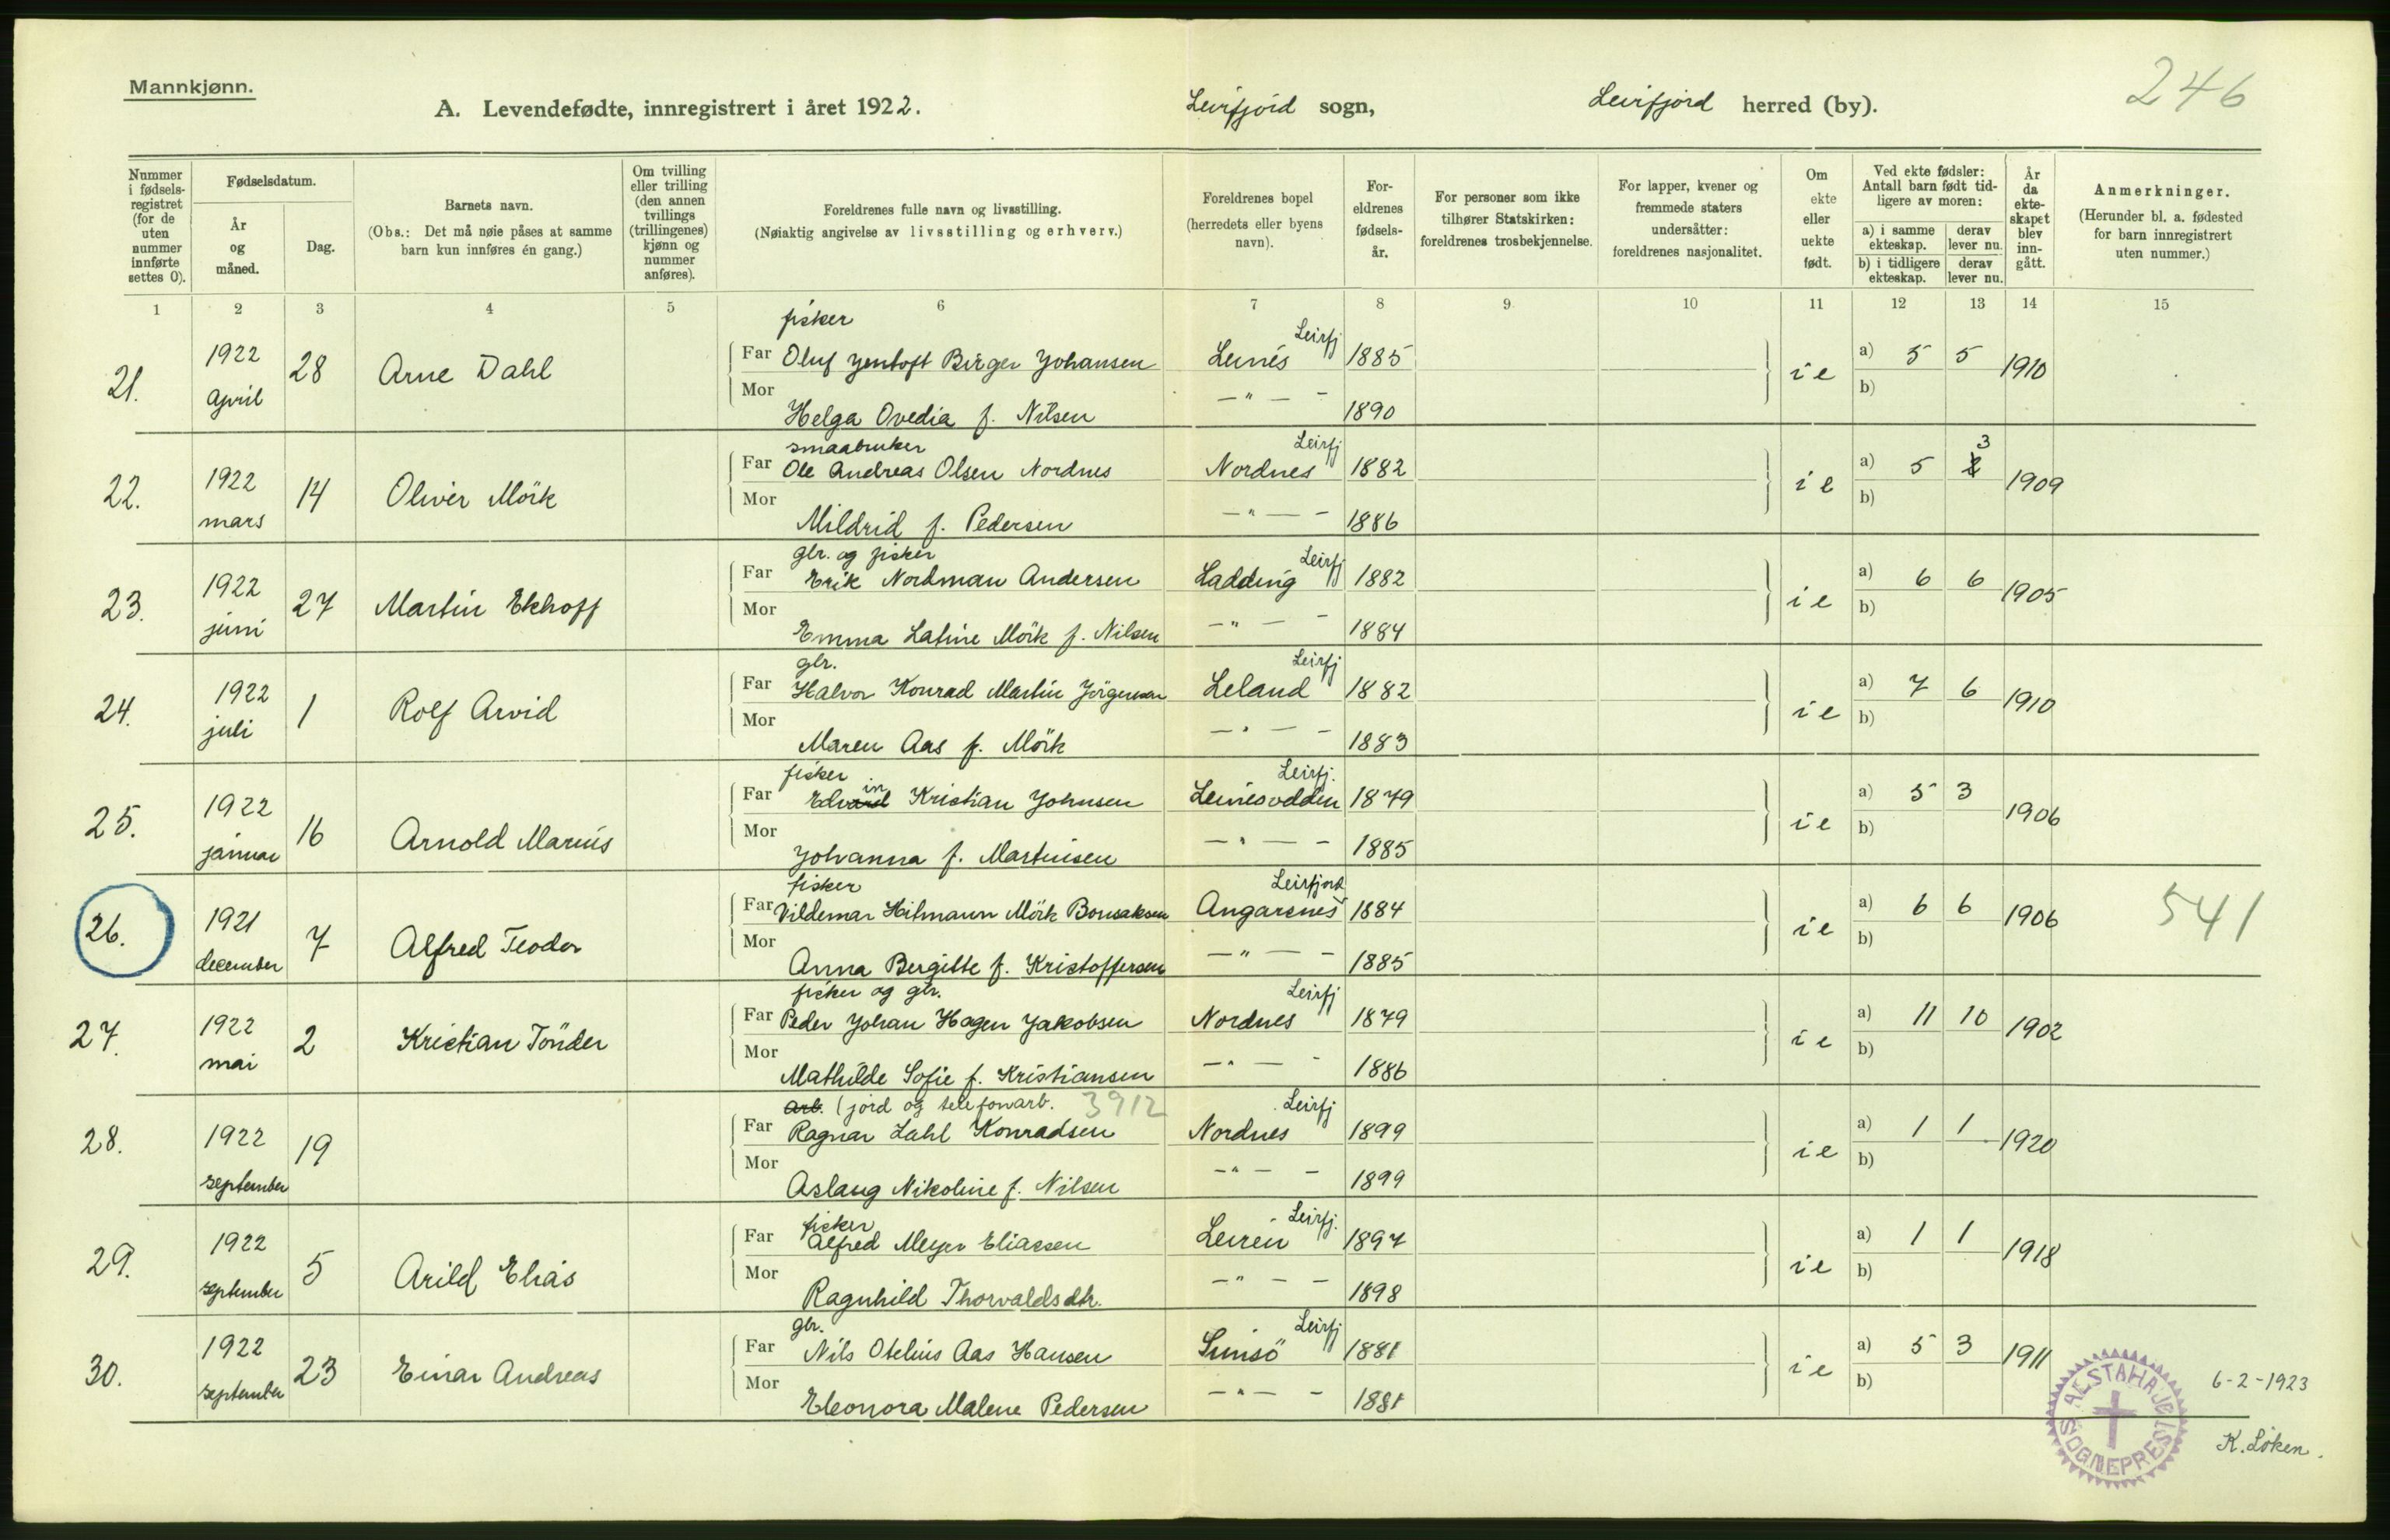 Mannkjønn.
A. Levendefødte, innregistrert i året 1922. Leirfjord sogn, Leirfjord herred (by).
246
Nummer i fødsels-registret (for de uten nummer innførte settes 0).
Fødselsdatum.
År og måned.
Dag.
Barnets navn.
(Obs.: Det må nøie påses at samme barn kun innføres én gang.)
Om tvilling eller trilling (den annen tvillings (trillingenes) kjønn og nummer anføres).
Foreldrenes fulle navn og livsstilling.
(Nøiaktig angivelse av livsstilling og erhverv.)
Foreldrenes bopel
(herredets eller byens navn).
For-eldrenes fødsels-år.
For personer som ikke tilhører Statskirken: foreldrenes trosbekjennelse.
For lapper, kvener og fremmede staters undersåtter: foreldrenes nasjonalitet.
Om ekte eller uekte født.
Ved ekte fødsler: Antall barn født tid-ligere av moren:
a) i samme ekteskap. derav lever nu.
b) i tidligere ekteskap. derav lever nu.
År da ekte-skapet blev inn-gått.
Anmerkninger.
(Herunder bl. a. fødested for barn innregistrert uten nummer.)
1 2 3 4 5 6 7 8 9 10 11 12 13 14 15
fisker Leirfj
21. 1922 april 28 Arne Dahl Far Oluf Jentoft Birger Johansen Leinés 1885 i e a) 5 5 1910
Mor Helga Ovedia f. Nilsen — " — - 1890 b)
smaabruker Leirfj
22. 1922 mars 14 Oliver Mörk Far Ole Andreas Olsen Nordnes Nordnes 1882 i e a) 5 3 1909
Mor Mildrid f. Pedersen — " — - 1886 b)
gbr. og fisker Leirfj
23. 1922 juni 27 Martin Ekhoff Far Erik Nordman Andersen Ladding 1882 i e a) 6 6 1905
Mor Emma Latine Mörk f. Nilsen — " — - 1884 b)
gbr. Leirfj
24. 1922 juli 1 Rolf Arvid Far Halvor Konrad Martin Jörgensen Leland 1882 i e a) 7 6 1910
Mor Maren Aas f. Mörk — " — - 1883 b)
fisker Leirfj.
25. 1922 januar 16 Arnold Marius Far Edvin Kristian Johnsen Leinesodden 1879 i e a) 5 3 1906
Mor Johanna f. Martinsen — " — - 1885 b)
fisker Leirfjord
26. 1921 december 7 Alfred Teodor Far Vildemar Hilmann Mörk Bonsaksen Angarsnes 1884 i e a) 6 6 1906 541
Mor Anna Bergitte f. Kristoffersen — " — - 1885 b)
fisker og gbr. Leirfj
27. 1922 mai 2 Kristian Tönder Far Peder Johan Hagen Jakobsen Nordnes 1879 i e a) 11 10 1902
Mor Mathilde Sofie f. Kristiansen — " — - 1886 b)
arb. (jord og telefonarb. 3912 Leirfj
28. 1922 september 19 Far Ragnar Dahl Konradsen Nordnes 1899 i e a) 1 1 1920
Mor Aslaug Nikoline f. Nilsen — " — - 1899 b)
fisker Leirfj.
29. 1922 september 5 Arild Elias Far Alfred Meyer Eliassen Leiren 1897 i e a) 1 1 1918
Mor Ragnhild Thorvaldsdtr. — " — - 1898 b)
gbr. Leirfj
30. 1922 september 23 Einar Andreas Far Nils Otelius Aas Hansen 1881 i e a) 5 3 1911
Mor Eleonora Malene Pedersen — " — - 1881 b)
ALSTAHAUG SOGNEPREST
6-2-1923
K. Löken.